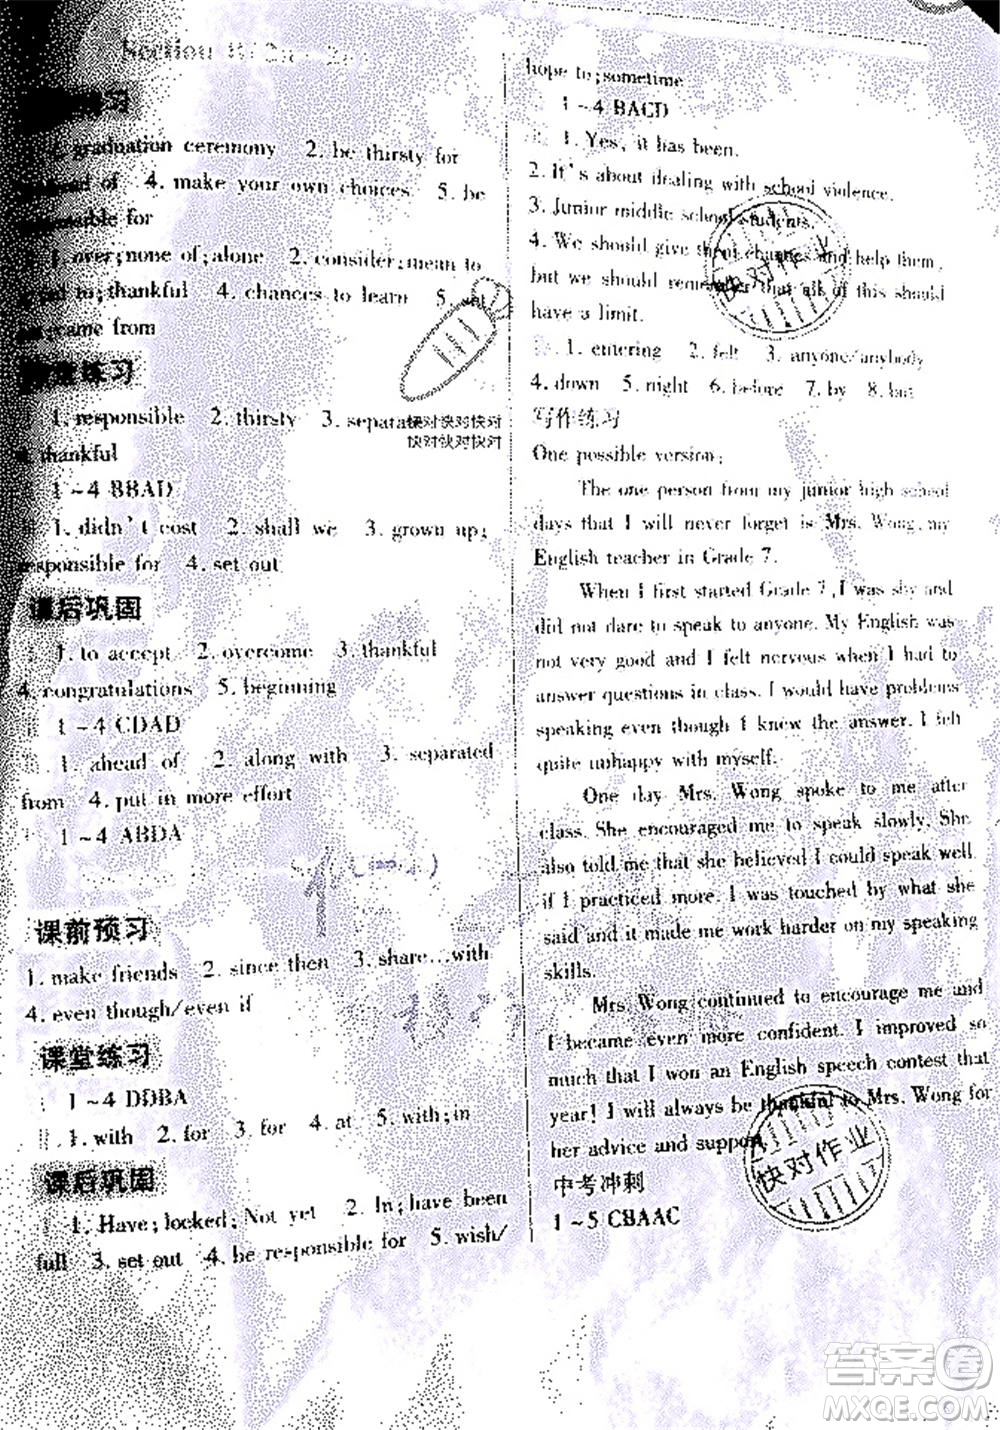 Section B(2a~2e)
练习
1. graduation ceremony 2. be thirsty for
ahead of 4. make your own choices 5. be
responsible for
1. over;none of;alone 2. consider;mean to
to;thankful 4. chances to learn 5. set
came from
练习
1. responsible 2. thirsty 3. separate
4. thankful
1~4 BBAD
1. didn't cost 2. shall we 3. grown up;
responsible for 4. set out
课后巩固
1. to accept 2. overcome 3. thankful
4. congratulations 5. beginning
1~4 CDAD
1. ahead of 2. along with 3. separated
from 4. put in more effort
1~4 ABDA
课前预习
1. make friends 2. since then 3. share...with
4. even though/even if
课堂练习
1~4 DDBA
Ⅱ. 1. with 2. for 3. for 4. at 5. with;in
课后巩固
1. Have;locked;Not yet 2. In;have been
full 3. set out 4. be responsible for 5. wish/
hope to;sometime
1~4 BACD
1. Yes, it has been.
2. It's about dealing with school violence.
3. Junior middle school students.
4. We should give them chances and help them,
but we should remember that all of this should
have a limit.
1. entering 2. felt 3. anyone/anybody
4. down 5. night 6. before 7. by 8. but
写作练习
One possible version:
The one person from my junior high school
days that I will never forget is Mrs. Wong, my
English teacher in Grade 7.
When I first started Grade 7, I was shy and
did not dare to speak to anyone. My English was
not very good and I felt nervous when I had to
answer questions in class. I would have problems
speaking even though I knew the answer. I felt
quite unhappy with myself.
One day Mrs. Wong spoke to me after
class. She encouraged me to speak slowly. She
also told me that she believed I could speak well
if I practiced more. I was touched by what she
said and it made me work harder on my speaking
skills.
Mrs. Wong continued to encourage me and
I became even more confident. I improved so
much that I won an English speech contest that
year! I will always be thankful to Mrs. Wong for
her advice and support.
中考冲刺
1~5 CBAAC
快对快对快对
快对快对快对
快对作业
快对作业
答案圈
MXQE.COM